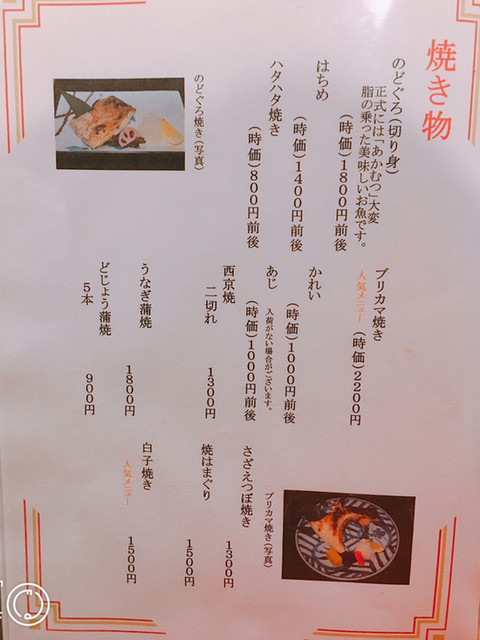 焼き物
のどぐろ(切り身)
正式には「あかむつ」大変
脂の乗った美味しいお魚です。
(時価)1800円前後
はちめ
(時価)1400円前後
ハタハタ焼き
(時価)800円前後
のどぐろ焼き(写真)
ブリカマ焼き
人気メニュー
(時価)2200円
かれい
(時価)1000円前後
あじ
入荷がない場合がございます。
(時価)1000円前後
西京焼
二切れ
1300円
うなぎ蒲焼
1800円
どじょう蒲焼
5本
900円
ブリカマ焼き(写真)
さざえつぼ焼き
1300円
焼はまぐり
1500円
白子焼き
人気メニュー
1500円